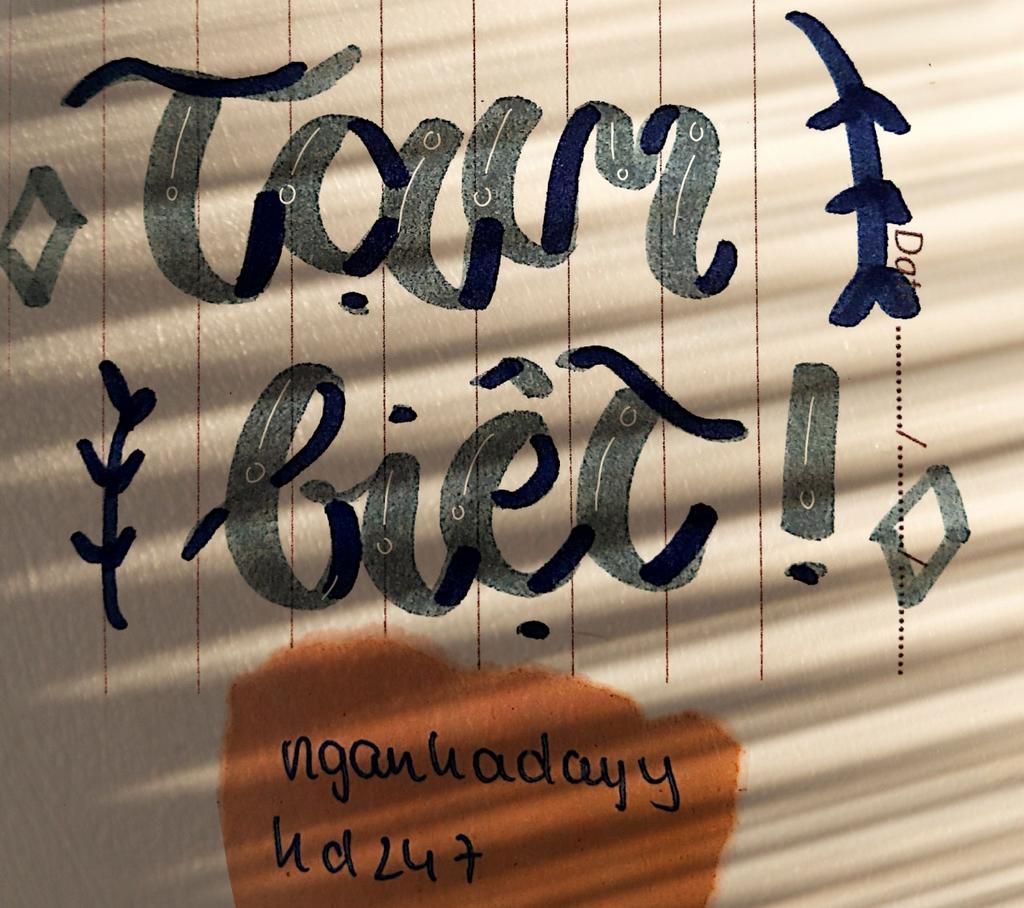 Tạm
biệt!
Date
nganhadayy
hd247